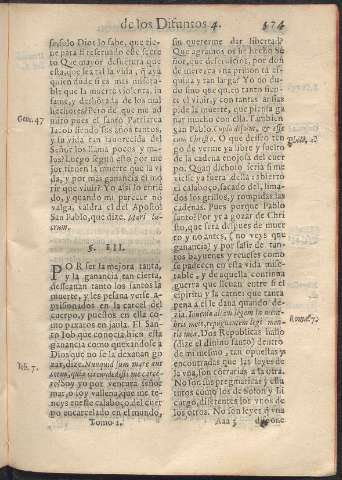 de los Difuntos 4. 474
sensido Dios lo sabe, que tie-
ne para si reservado esse secre
to Que mayor desventura que
esta, que sea tal la vida, q aya
quien dude si es mas misera-
ble que la muerte violenta, in
fame, y deshonrada de los mal
hechores? Pero de que me ad
miro pues el santo Patriarca
Iacob siendo sus años tantos,
y la vida tan favorecida del
Señor los llama pocos y ma-
los? Luego segun esto por me
jor tienen la muerte que la vi
da, y por mas ganancia el mo
rir que vivir? Yo assi lo entié
do, y quando mi parecer no
valga, valdra el del Apostol
San Pablo, que dize. Mori lu-
crum.
Gen. 47
§. III.
POR ser la mejora tanta,
y la ganancia tan cierta,
desseavan tanto los santos la
muerte, y les pesava verse a-
prisionados en la carcel del
cuerpo, y puestos en ella co-
mo paxaros en jaula. El San-
to Job que conocia bien esta
ganancia como quexandose a
Dios que no se la dexavan go
zar, dize. Nunquid sum mare aut
cetus, quia circundedisti me carce-
re? Soy yo por ventura señor
mar, o soy vallena, que me te-
neys en este calabozo del cuer
po encarcelado en el mundo,
Iob. 7.
Tomo 1.
sin quererme dar libertad?
Que agravios os he hecho se-
ñor, que deservicios, por don
de merezca una prision tã es-
quiva y tan larga? Yo no du-
do sino que quien tanto sien-
te el vivir, y con tantas ansias
pide la muerte, que piensa ga
nar mucho con ella. Tambien
san Pablo Cupio dissolui, & esse
cum Christo. O que desseo ten
go de verme ya libre y suelto
de la cadena enojosa del cuer
po. Quan dichoso seria si me
viesse ya fuera deste obscuro
calabozo, sacado del, lima-
dos los grillos, y rompidas las
cadenas. Pues porque Pablo
santo? Por yr a gozar de Chri
sto, que sera despues de muer
to y no antes, (no veys que
ganancia) y por salir de tan-
tos vayvenes y rezeles como
se padecen en esta vida mise-
rable, y de aquella continua
guerra que sienten entre si el
espiritu y la carne que tanta
pena a el le dava quando de-
zia. Invenio aliam legem in mem-
bris meis, repugnantem legi men-
tis mea. Dos Republicas hallo
(dize el divino santo) dentro
de mi mesmo, tan opuestas y
encontradas que las leyes de
la una, son contrarias a la otra.
No son sus pregmaticas y esta
tutos como los de Solon y Li
cargo, diferentes los unos de
los otros. No son leyes q una
Philip. 1.
Roman. 7.
Aaa 3 dispone